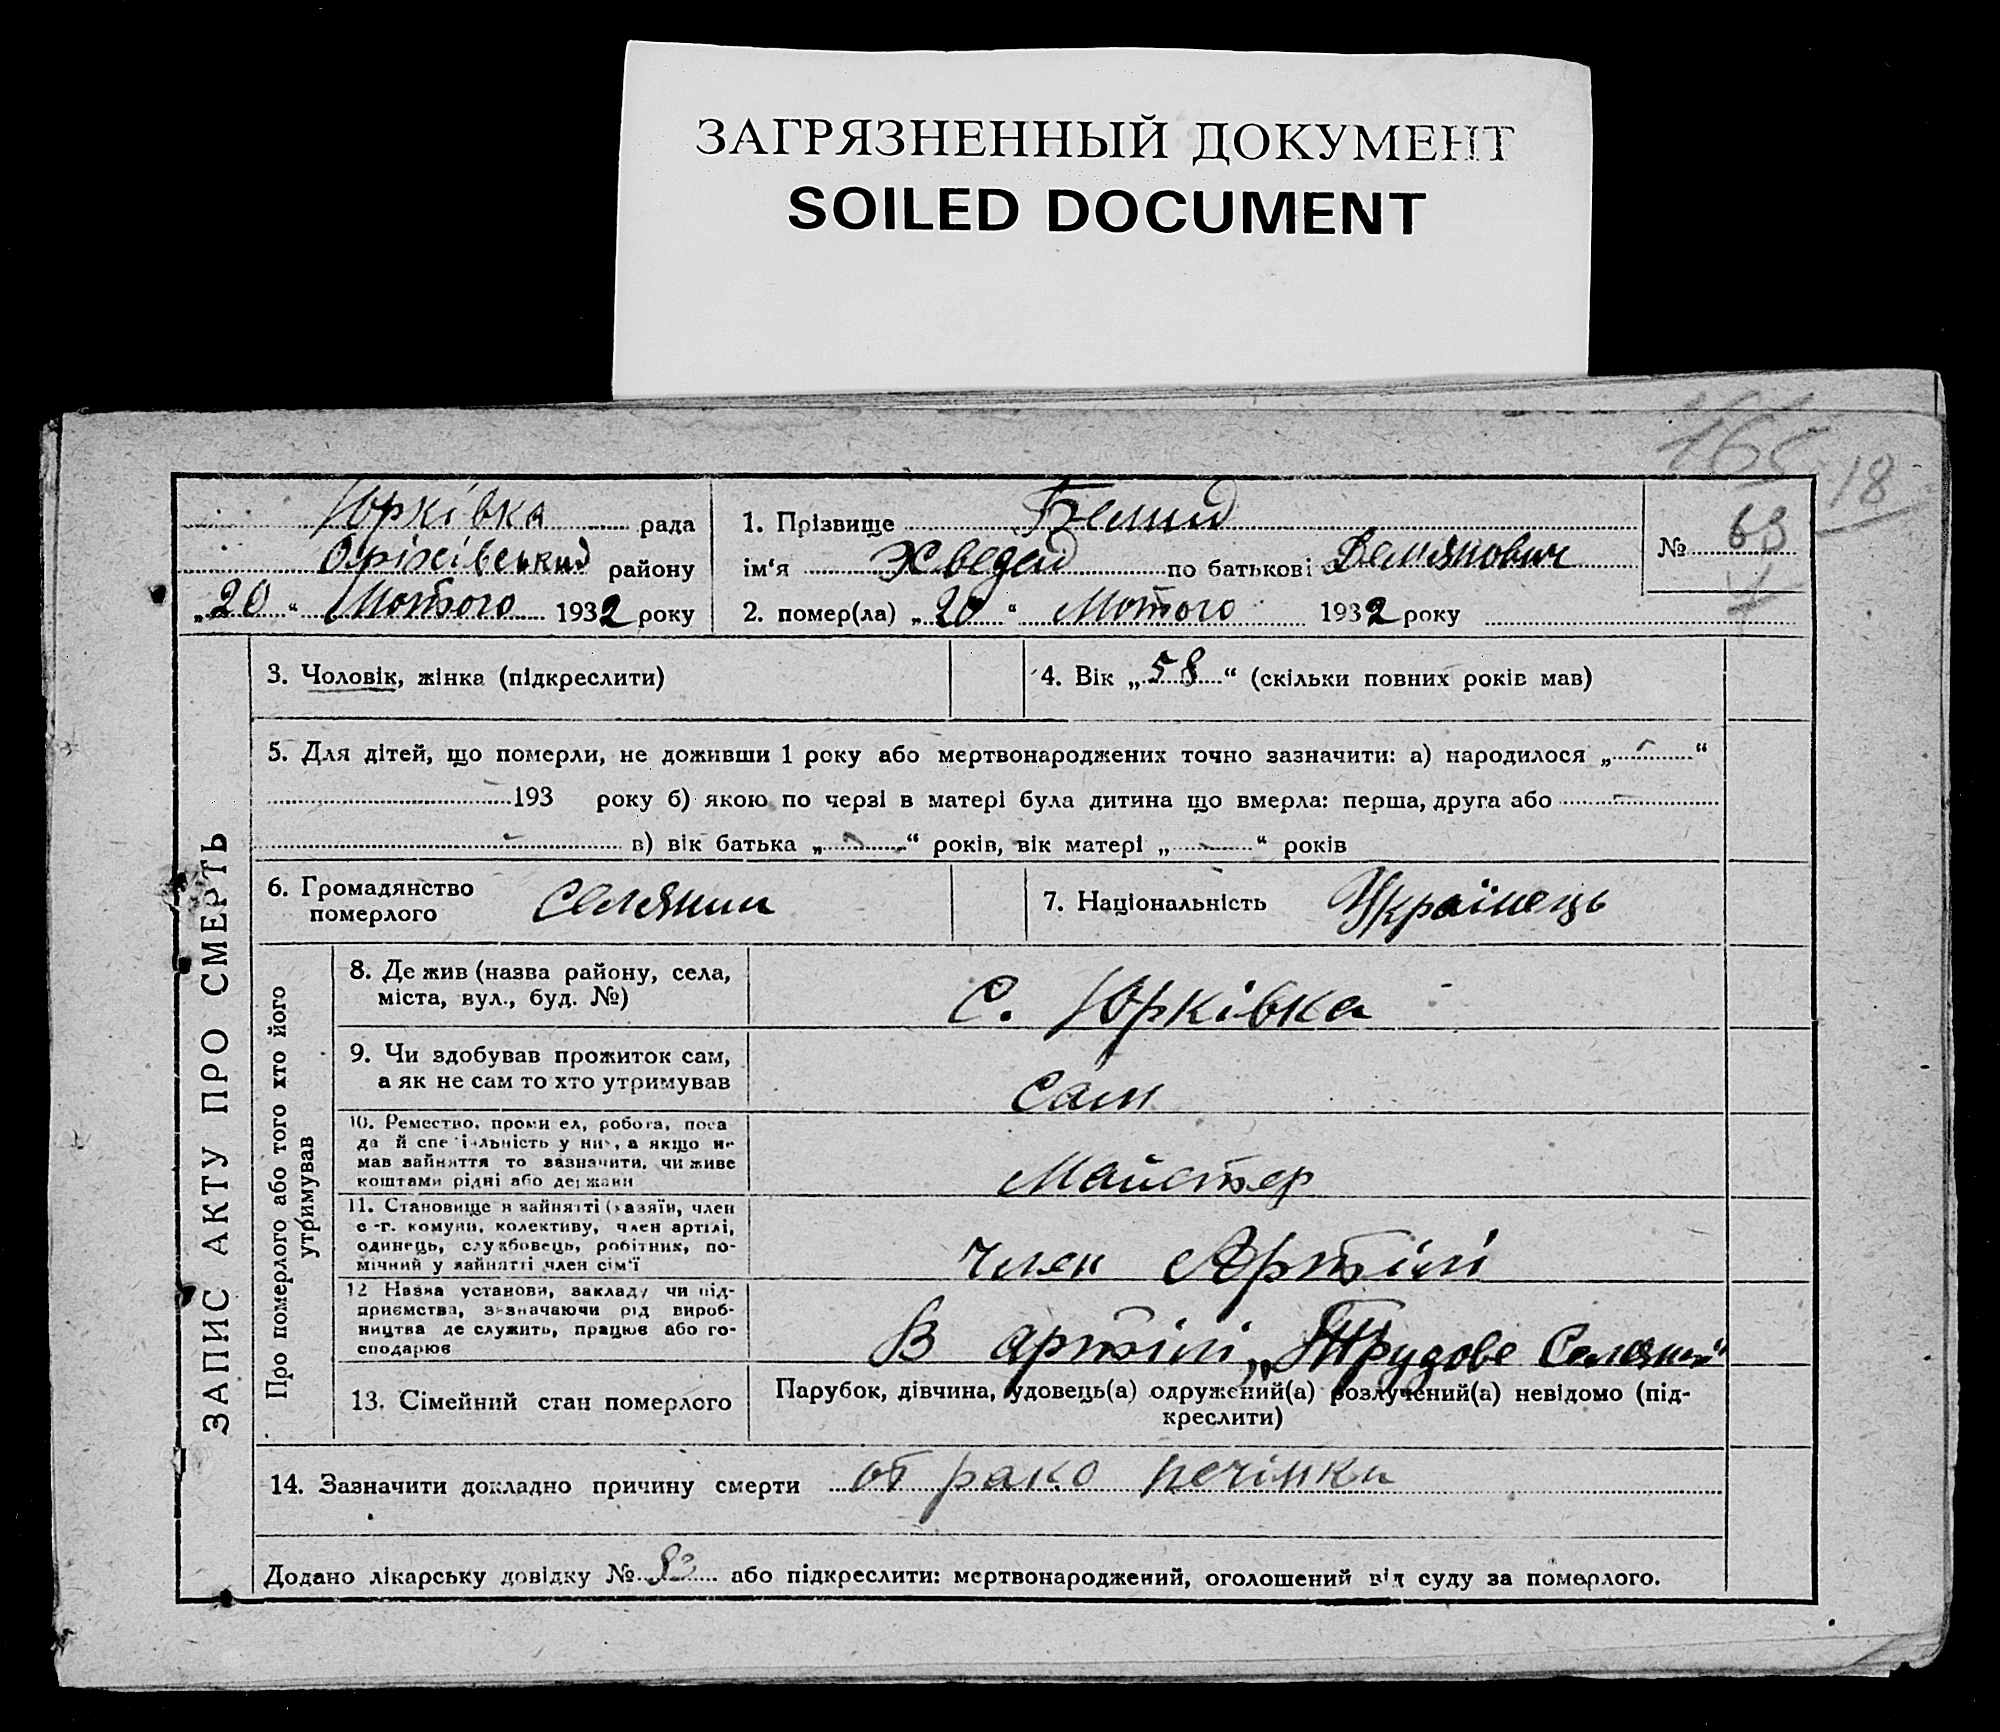 ЗАГРЯЗНЕННЫЙ ДОКУМЕНТ
SOILED DOCUMENT
165
18
Юрківка рада
Оріхівський району
„20“ Лютого 1932 року
1. Прізвище
ім'я Хведей по батькові Демянович
2. помер(ла) „20“ Лютого 1932 року
№ 63
ЗАПИС АКТУ ПРО СМЕРТЬ
3. Чоловік, жінка (підкреслити)
4. Вік „58“ (скільки повних років мав)
5. Для дітей, що померли, не доживши 1 року або мертвонароджених точно зазначити: а) народилося „ “
193 року б) якою по черзі в матері була дитина що вмерла: перша, друга або
в) вік батька „ “ років, вік матері „ “ років
6. Громадянство
померлого
селянин
7. Національність Українець
Про померлого або того хто його
утримував
8. Де жив (назва району, села,
міста, вул., буд. №)
С. Юрківка
9. Чи здобував прожиток сам,
а як не сам то хто утримував
Сам
10. Ремество, проми ел, робота, поса
да й спеціальність у них, а якщо не
мав зайняття то зазначити, чи живе
коштами рідні або держави
Майстер
11. Становище в зайнятті (хазяїн, член
с-г. комуни, колективу, член артілі,
одинець, службовець, робітник, по-
мічний у зайнятті член сім'ї
член Артілі
12 Назва установи, закладу чи під-
приємства, зазначаючи рід вироб-
ництва де служить, працює або го-
сподарює
В артілі „Трудове Селянст“
13. Сімейний стан померлого
Парубок, дівчина, удовець(а) одружений(а) розлучений(а) невідомо (під-
креслити)
14. Зазначити докладно причину смерти от рако печінки
Додано лікарську довідку № або підкреслити: мертвонароджений, оголошений від суду за померлого.